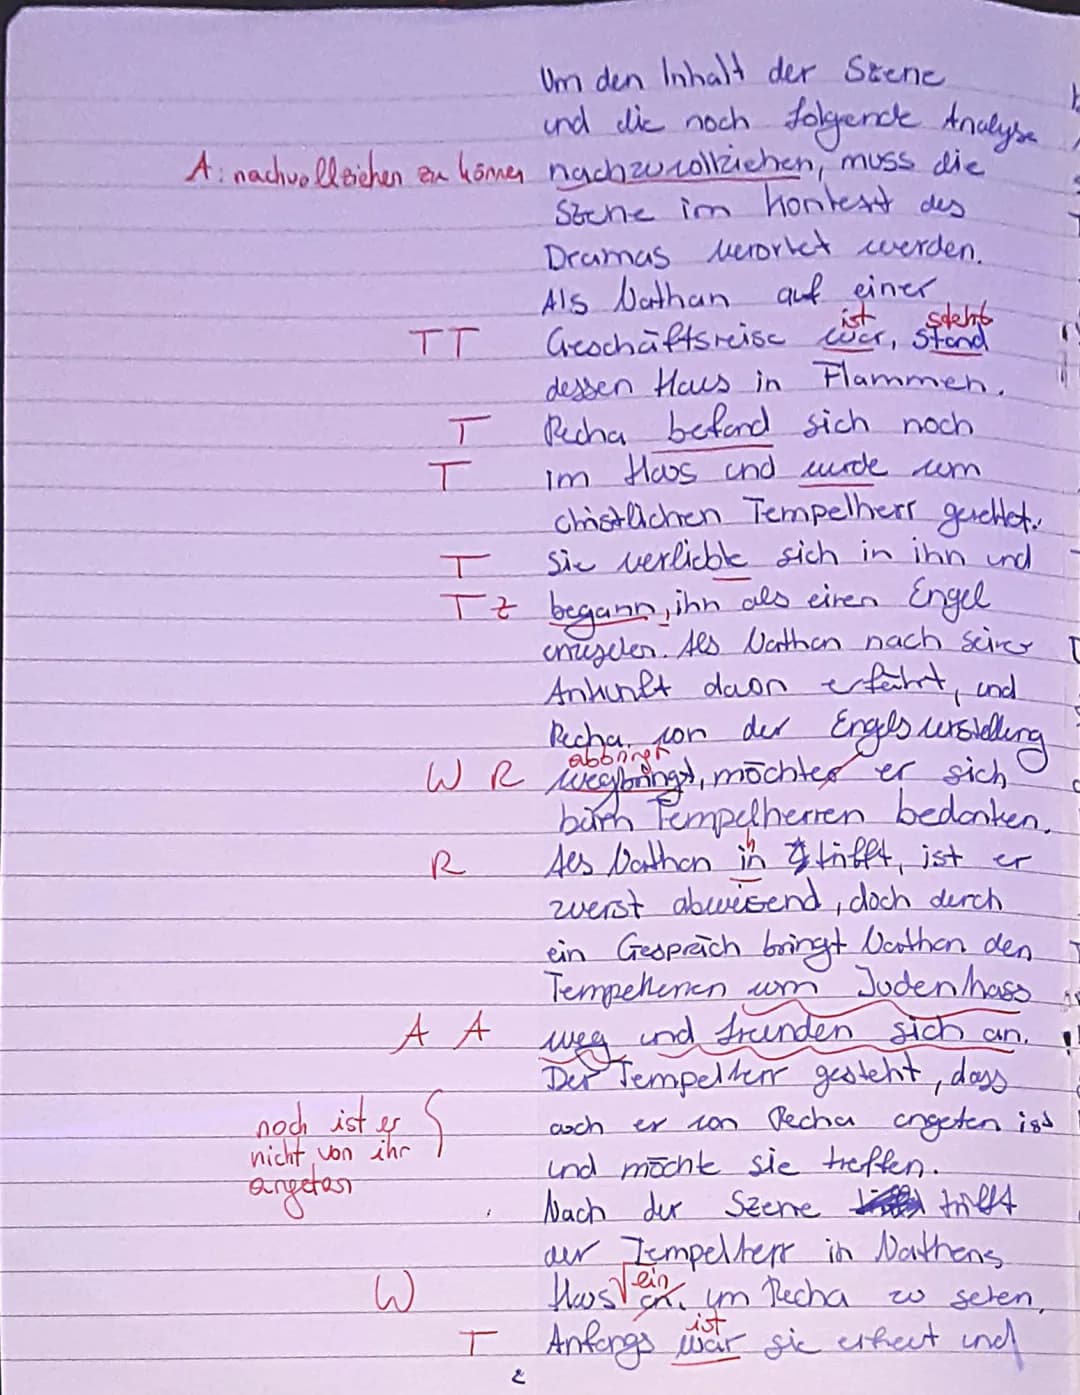 Um den Inhalt der Szene
und die noch folgende Analyse
A: nachvollziehen zu können nachzuvollziehen, muss die
Szene im Kontext des
Dramas verortet werden.
Als Nathan auf einer
ist steht
TT Geschäftsreise war, stand
dessen Haus in Flammen.
T Recha befand sich noch
T im Haus und wurde vom
christlichen Tempelherr gerettet.
T Sie verliebte sich in ihn und
T Z begann, ihn als einen Engel
. Als Nathan nach seiner
Ankunft davon erfährt, und
Recha von der Engelsvorstellung
abbringt
W R wegbringt, möchte er sich
Tempelherren bedanken.
h
R Als Nathan in trifft, ist er
zuerst abweisend, doch durch
ein Gespräch bringt Nathan den
Tempelherren vom Judenhass
A A weg und freunden sich an.
Der Tempelherr gesteht, dass
noch ist er auch er von Recha angeten ist
nicht von ihr und möchte sie treffen.
angetan
Nach der Szene trifft
der Tempelherr in Nathans
ein
W Haus an, um Recha zu sehen.
ist
T Anfangs war sie erfreut und
2